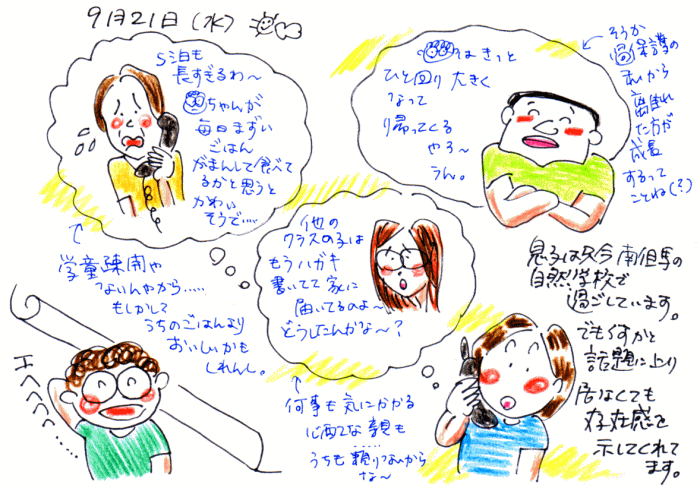 9月21日(水)
5泊も
長すぎるわ〜
ちゃんが
毎日まずい
ごはん
がまんして食べて
るかと思うと
かわい
そうで....
学童疎開や
ないんやから.....
もしかして
うちのごはんより
おいしいかも
しれんし。
エヘヘヘヘ....
はきっと
ひと回り大きく
なって
帰ってくる
やろ〜
うん。
そうか
過保護の
私から
離れ
た方が
成長
するって
ことね(?)
他の
クラスの子は
もうハガキ
書いてて家に
届いてるのよ〜
どうしたんかな〜?
何事も気にかかる
心配な親も
......
うちも頼りないから
な〜
息子は只今南但馬の
自然学校で
過ごしています。
でも何かと
話題に上り
居なくても
存在感を
示してくれて
ます。